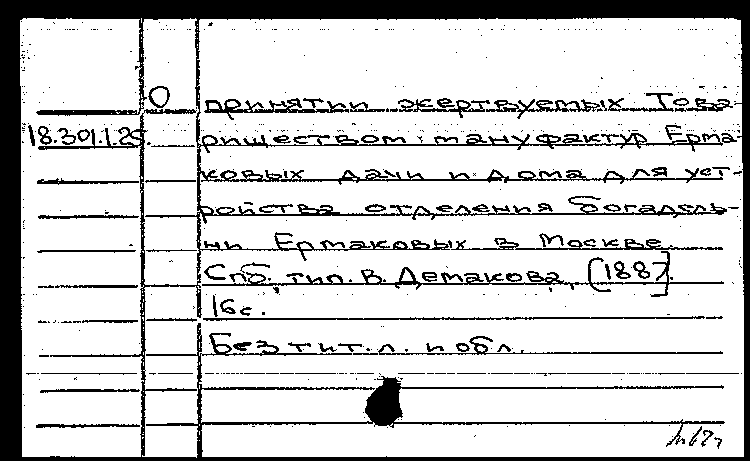 О принятии жертвуемых Това-
18.301.1.25. риществом мануфактур Ерма-
ковых дачи и дома для уст-
ройства отделения богадель-
ни Ермаковых в Москве.
Спб., тип. В. Демакова, [1887].
16с.
Без тит.л. и обл.